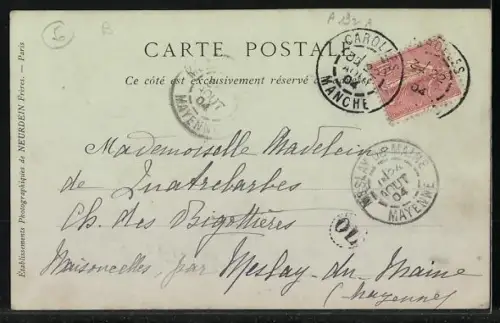 A 192 A
6
B
CARTE POSTALE
Ce côté est exclusivement réservé
CAROLLES
AOUT
04
MANCHE
CAROLLES
04
AOUT
04
MAYENNE
Mademoiselle Madeleine
de Quatrebarbes
Ch. des Bigottières
Maisoncelles, par Meslay-du-Maine
(Mayenne)
MESLAY-DU-MAINE
AOUT
04
MAYENNE
Etablissements Photographiques de NEURDEIN Frères. — Paris